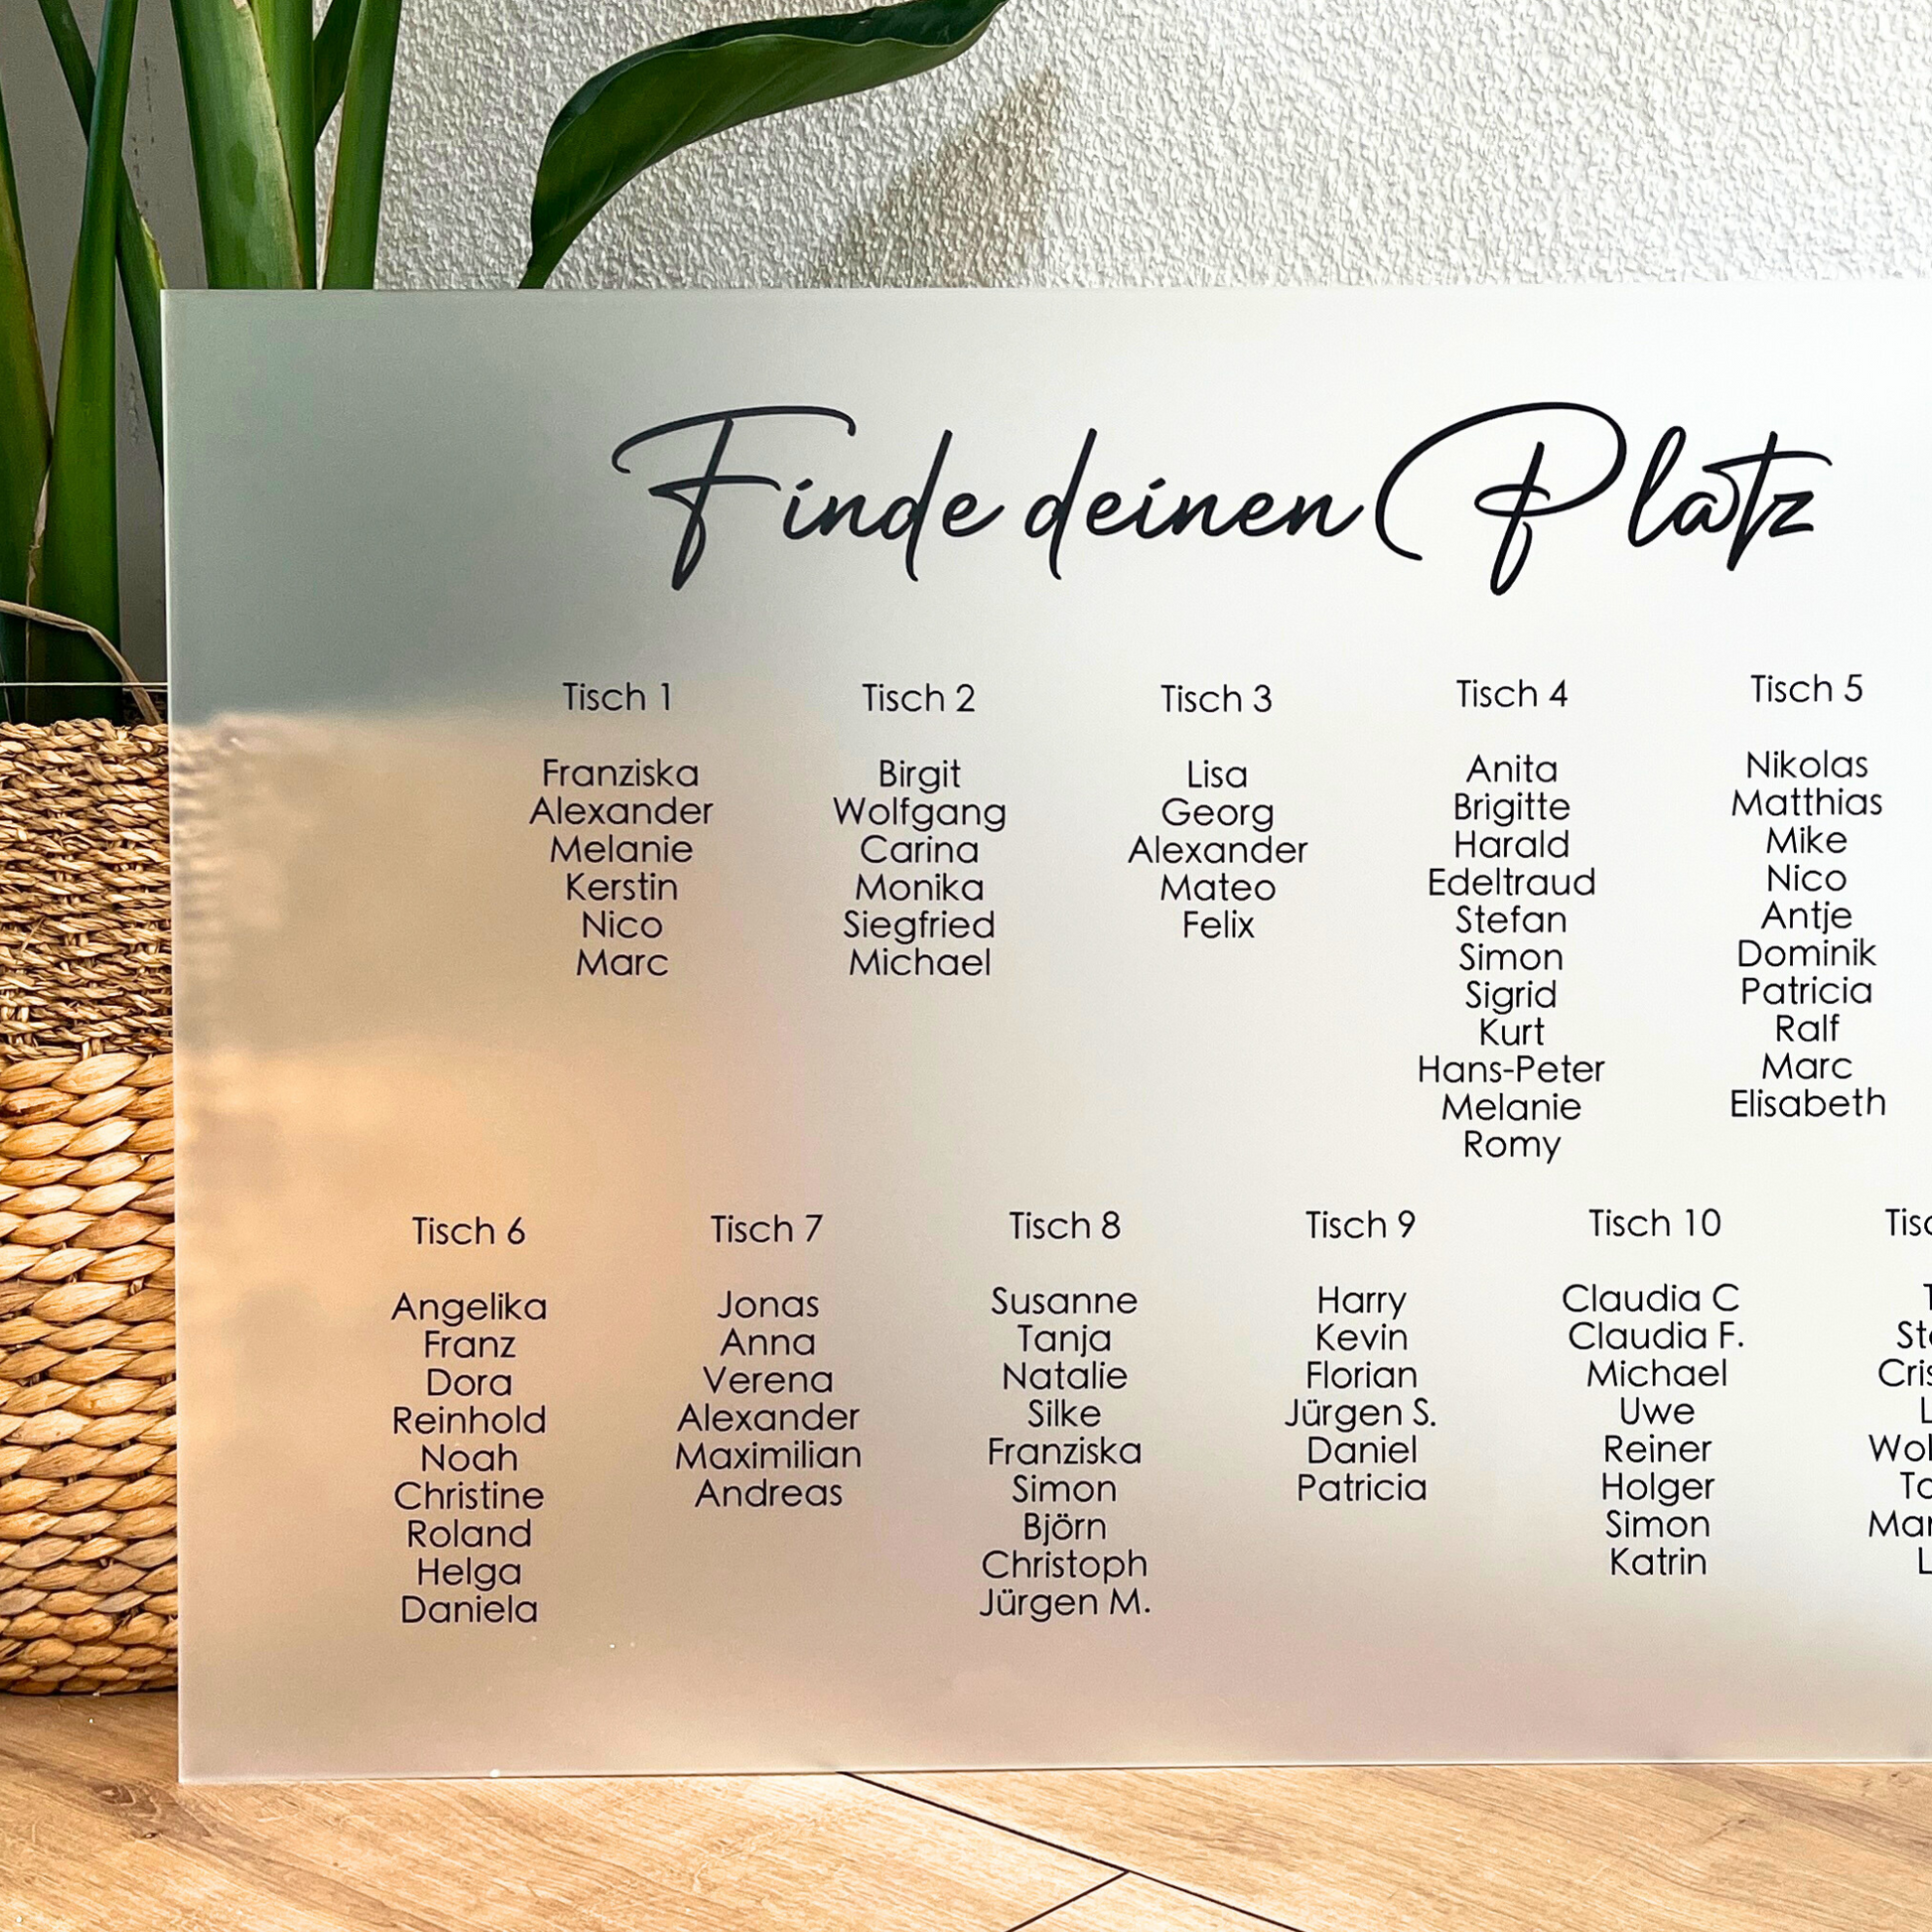 Finde deinen Platz
Tisch 1
Franziska
Alexander
Melanie
Kerstin
Nico
Marc
Tisch 2
Birgit
Wolfgang
Carina
Monika
Siegfried
Michael
Tisch 3
Lisa
Georg
Alexander
Mateo
Felix
Tisch 4
Anita
Brigitte
Harald
Edeltraud
Stefan
Simon
Sigrid
Kurt
Hans-Peter
Melanie
Romy
Tisch 5
Nikolas
Matthias
Mike
Nico
Antje
Dominik
Patricia
Ralf
Marc
Elisabeth
Tisch 6
Angelika
Franz
Dora
Reinhold
Noah
Christine
Roland
Helga
Daniela
Tisch 7
Jonas
Anna
Verena
Alexander
Maximilian
Andreas
Tisch 8
Susanne
Tanja
Natalie
Silke
Franziska
Simon
Björn
Christoph
Jürgen M.
Tisch 9
Harry
Kevin
Florian
Jürgen S.
Daniel
Patricia
Tisch 10
Claudia C
Claudia F.
Michael
Uwe
Reiner
Holger
Simon
Katrin